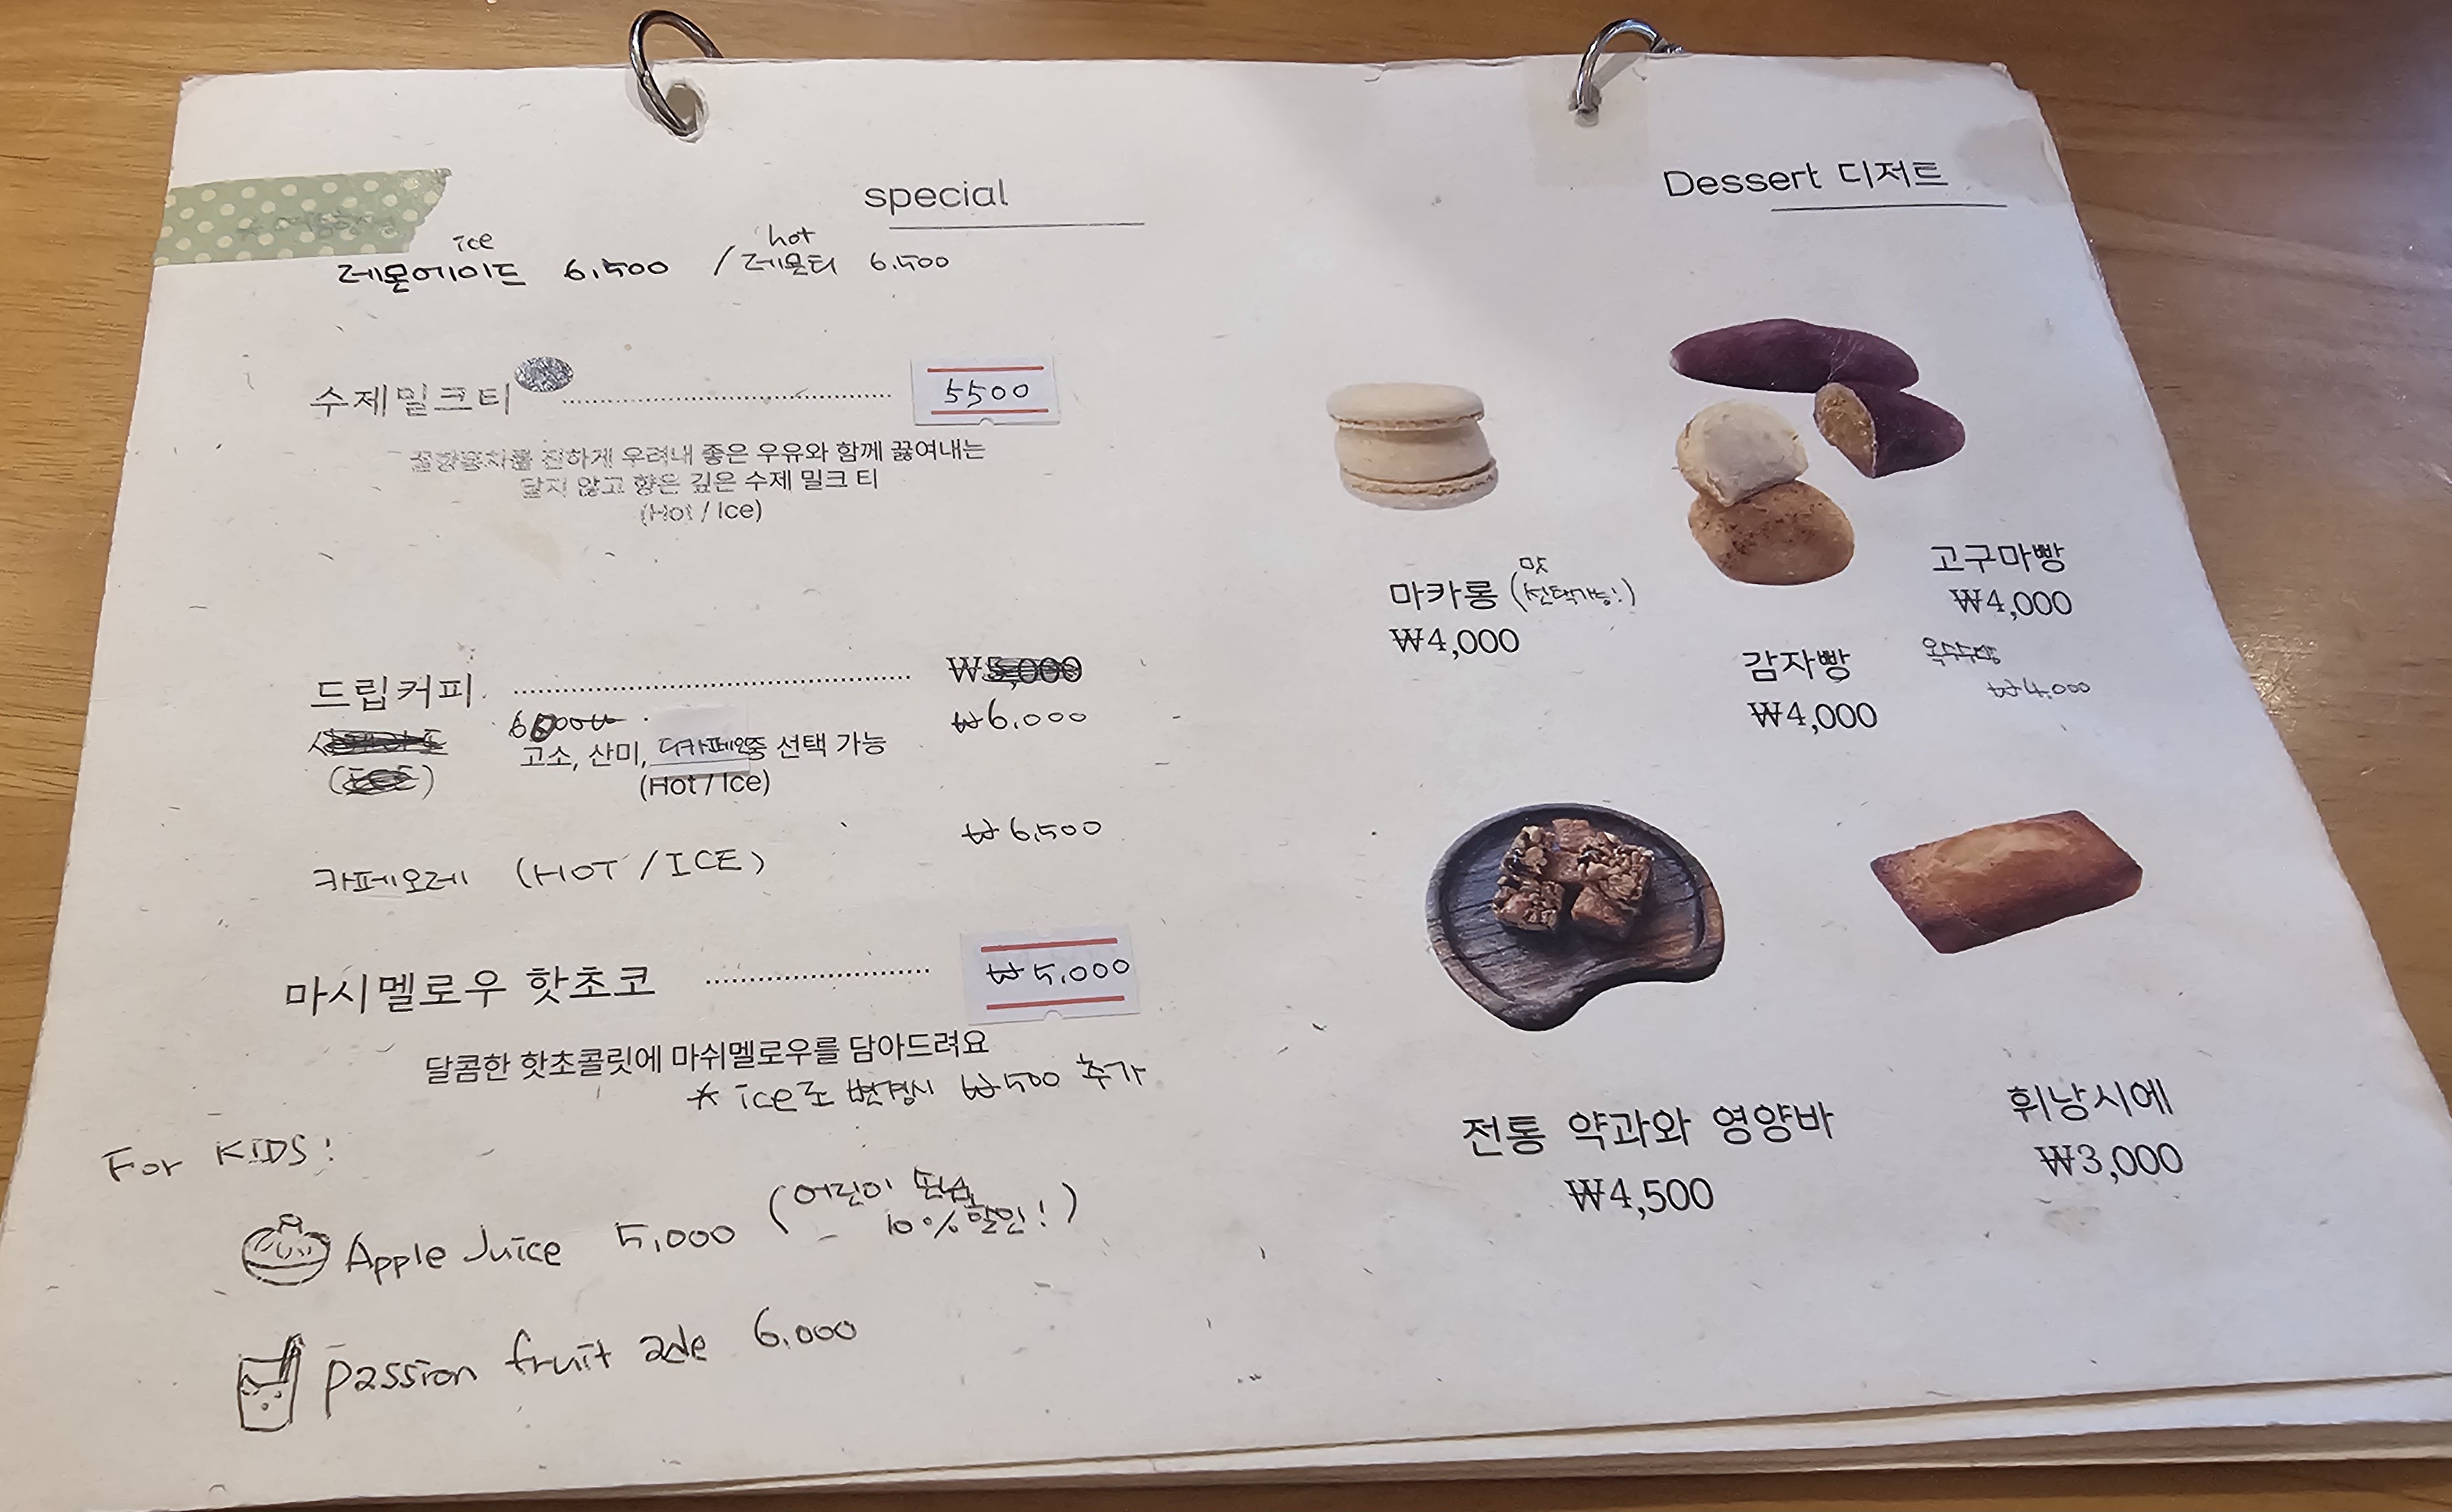 special
ice hot
레몬에이드 6,500 / 레몬티 6,500
수제밀크티 5500
진하게 우려내 좋은 우유와 함께 끓여내는
달지 않고 향은 깊은 수제 밀크 티
(Hot / Ice)
드립커피 ₩5,000
6000 ₩6,000
고소, 산미, 디카페인중 선택 가능
(Hot / Ice)
카페오레 (HOT / ICE) ₩6,500
마시멜로우 핫초코 ₩5,000
달콤한 핫초콜릿에 마쉬멜로우를 담아드려요
* ice로 변경시 ₩500 추가
For KIDS!
Apple Juice 5,000 (어린이 손님
10% 할인!)
passion fruit ade 6,000
Dessert 디저트
마카롱 (맛 선택가능!)
₩4,000
고구마빵
₩4,000
감자빵
₩4,000
옥수수빵
₩4,000
전통 약과와 영양바
₩4,500
휘낭시에
₩3,000